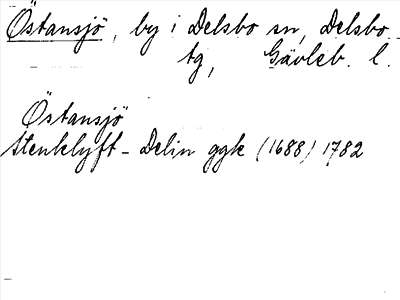 Östansjö, by i Delsbo sn, Delsbo
tg, Gävleb. l.
Östansjö
Stenklyft - Delin ggk (1688) 1782